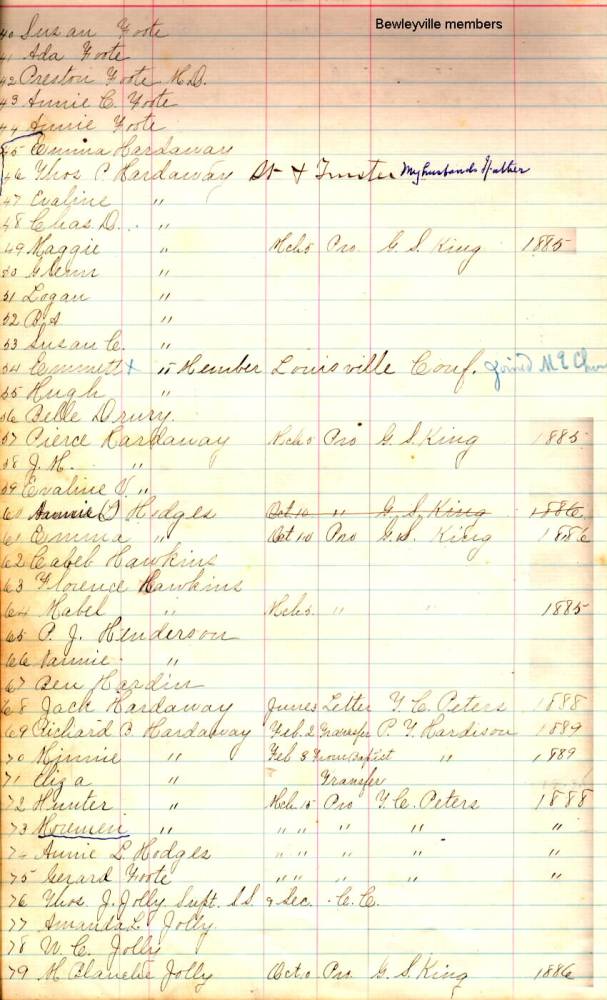 Bewleyville members
40 Susan Foote
41 Ada Foote
42 Preston Foote M.D.
43 Annie C. Foote
44 Annie Foote
45 Emma Hardaway
46 Thos P. Hardaway St & Trustee My husbands Father
47 Evaline "
48 Chas. D. "
49 Maggie " Mch 8 Pro. G. S. King 1885
50 Glenn "
51 Logan "
52 "
53 Susan C. "
54 Emmett x " Member Louisville Conf. joined M E
55 Hugh "
56 Belle Drury.
57 Pierce Hardaway Mch 8 Pro G. S. King 1885
58 J. H. "
59 Evaline V. "
60 Hodges Oct 10 " G. S. King 1886
61 Emma " Oct 10 Pro G. S. King 1886
62 Hawkins
63 Florence Hawkins
64 Mabel " Mch 8 " " 1885
65 P. J. Henderson
66 Nannie "
67 Ben Hardin
68 Jack Hardaway Letter Y. C. Peters 1888
69 Richard B. Hardaway Feb. 2 Transfer P. Y. Hardison 1889
70 Minnie " Feb 3 From Baptist " 1889
71 Eliza " Transfer
72 Hunter " Mch 15 Pro Y. C. Peters 1888
73 " " " " " "
74 Annie L. Hodges " " " " "
75 Gerard Foote " " " " "
76 Thos. J. Jolly Supt. S.S. & Sec. C. C.
77 Amanda L Jolly.
78 W. C. Jolly
79 M Blanche Jolly Oct. Pro. G. S. King 1886